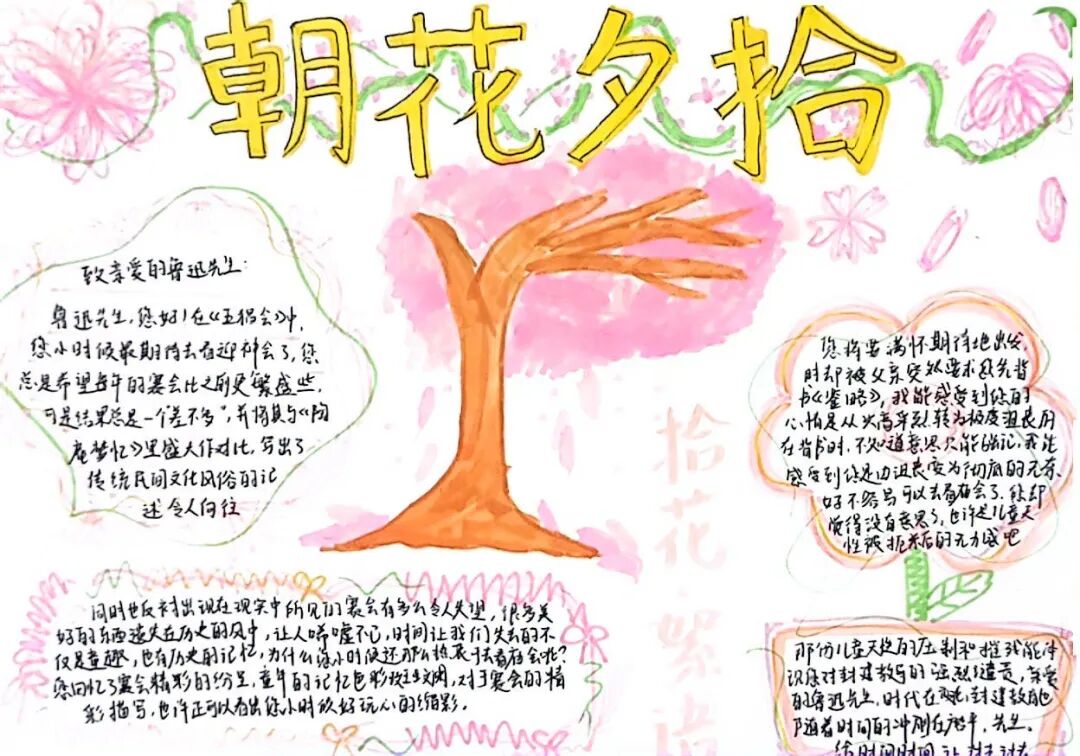 朝花夕拾
致亲爱的鲁迅先生:
鲁迅先生,您好!在《五猖会》中,
您小时候最期待去看迎神会了,您
总是希望每年的赛会比之前更繁盛些,
可是结果总是一个"差不多",并将其与《陶
庵梦忆》里盛大作对比,写出了
传统民间文化风俗的记
述令人向往
同时也反衬出现在现实中所见的赛会有多么令人失望,很多美
好的东西遗失在历史的风中,让人唏嘘不已,时间让我们失去的不
仅是童趣,也有历史的记忆,为什么您小时候还那么热衷于去看庙会呢?
您回忆了赛会精彩的纷呈,童年的记忆色彩斑斓,对于赛会的精
彩描写,也许正可以看出您小时候好玩心的缩影。
拾花·絮语
您将要满怀期待地出发,
时却被父亲突然要求必先背
书《鉴略》,我能感受到您的
心情是从兴高采烈转为极度沮丧,
在背书时,不知道意思只能强记,我能
感受到您是由沮丧变为彻底的无奈,
好不容易可以去看庙会了,您却
觉得没有意思了,也许是儿童天
性被扼杀后的无力感吧
那份儿童天性的压制和摧
您对封建教育的强烈谴责,亲爱
的鲁迅先生,时代在
随着时间的冲刷